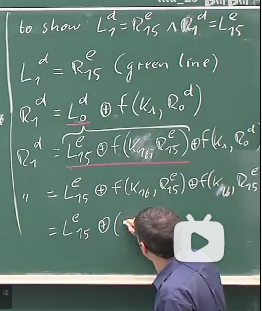 to show L₁ᵈ = R₁₅ᵉ ∧ R₁ᵈ = L₁₅ᵉ
L₁ᵈ = R₁₅ᵉ (green line)
R₁ᵈ = L₀ᵈ ⊕ f(K₁, R₀ᵈ)
R₁ᵈ = L₁₅ᵉ ⊕ f(K₁₆, R₁₅ᵉ) ⊕ f(K₁, R₀ᵈ)
" = L₁₅ᵉ ⊕ f(K₁₆, R₁₅ᵉ) ⊕ f(K₁₆, R₁₅ᵉ
= L₁₅ᵉ ⊕ (